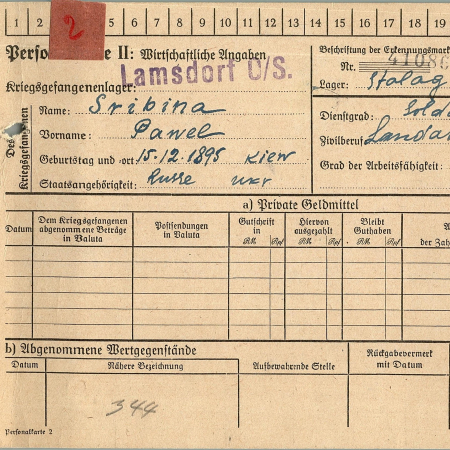 1 2 5 6 7 8 9 10 11 12 13 14 15 16 17 18 19
2
II: Wirtschaftliche Angaben
Beschriftung der Erkennungsmark
Lamsdorf O/S.
Nr. 41086
Kriegsgefangenenlager:
Lager: Stalag
Des Kriegsgefangenen
Name: Sribina
Dienstgrad: Solda
Vorname: Pawel
Zivilberuf Landar
Geburtstag und -ort 15.12.1895 Kiew
Grad der Arbeitsfähigkeit:
Staatsangehörigkeit: Russe ukr
a) Private Geldmittel
Datum
Dem Kriegsgefangenen abgenommene Beträge in Valuta
Postsendungen in Valuta
Gutschrift in
RM. Rpf
Hiervon ausgezahlt
RM. Rpf
Bleibt Guthaben
RM. Rpf
A
der Zah
b) Abgenommene Wertgegenstände
Datum
Nähere Bezeichnung
Aufbewahrende Stelle
Rückgabevermerk mit Datum
344
Personalkarte 2